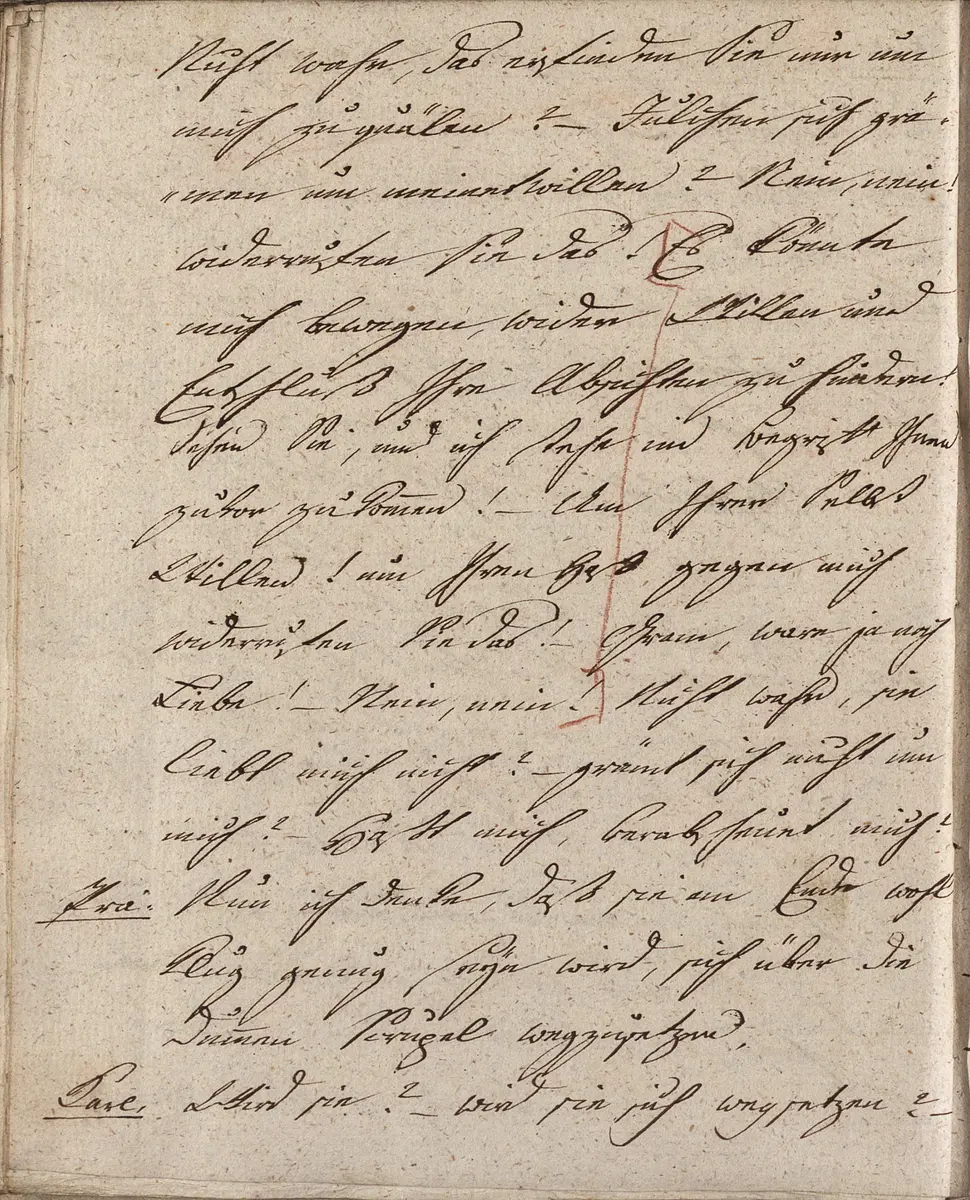 Nicht wahr, das erfinden Sie nur um
mich zu quälen? – Julchen sich grä-
"men um meinetwillen? Nein, nein!
widerrufen Sie das! Es könnte
mich bewegen, wider Willen und
Entschluß Ihre Absichten zu hindern!
Sehen Sie, und ich stehe im Begriff Ihnen
zuvor zu kom̄en! – Um Ihrer Selbst
Willen! um Ihren Haß gegen mich
widerrufen Sie das! – Gram, wäre ja noch
Liebe! – Nein, nein! Nicht wahr, sie
liebt mich nicht? – grämt sich nicht um
mich? – Haßt mich, verabscheuet mich?
Prä: Nun ich denke, daß sie am Ende wohl
klug genug seyn wird, sich über die
dum̄en Scrupel wegzusetzen.
Carl. Wird sie? – wird sie sich wegsetzen? –